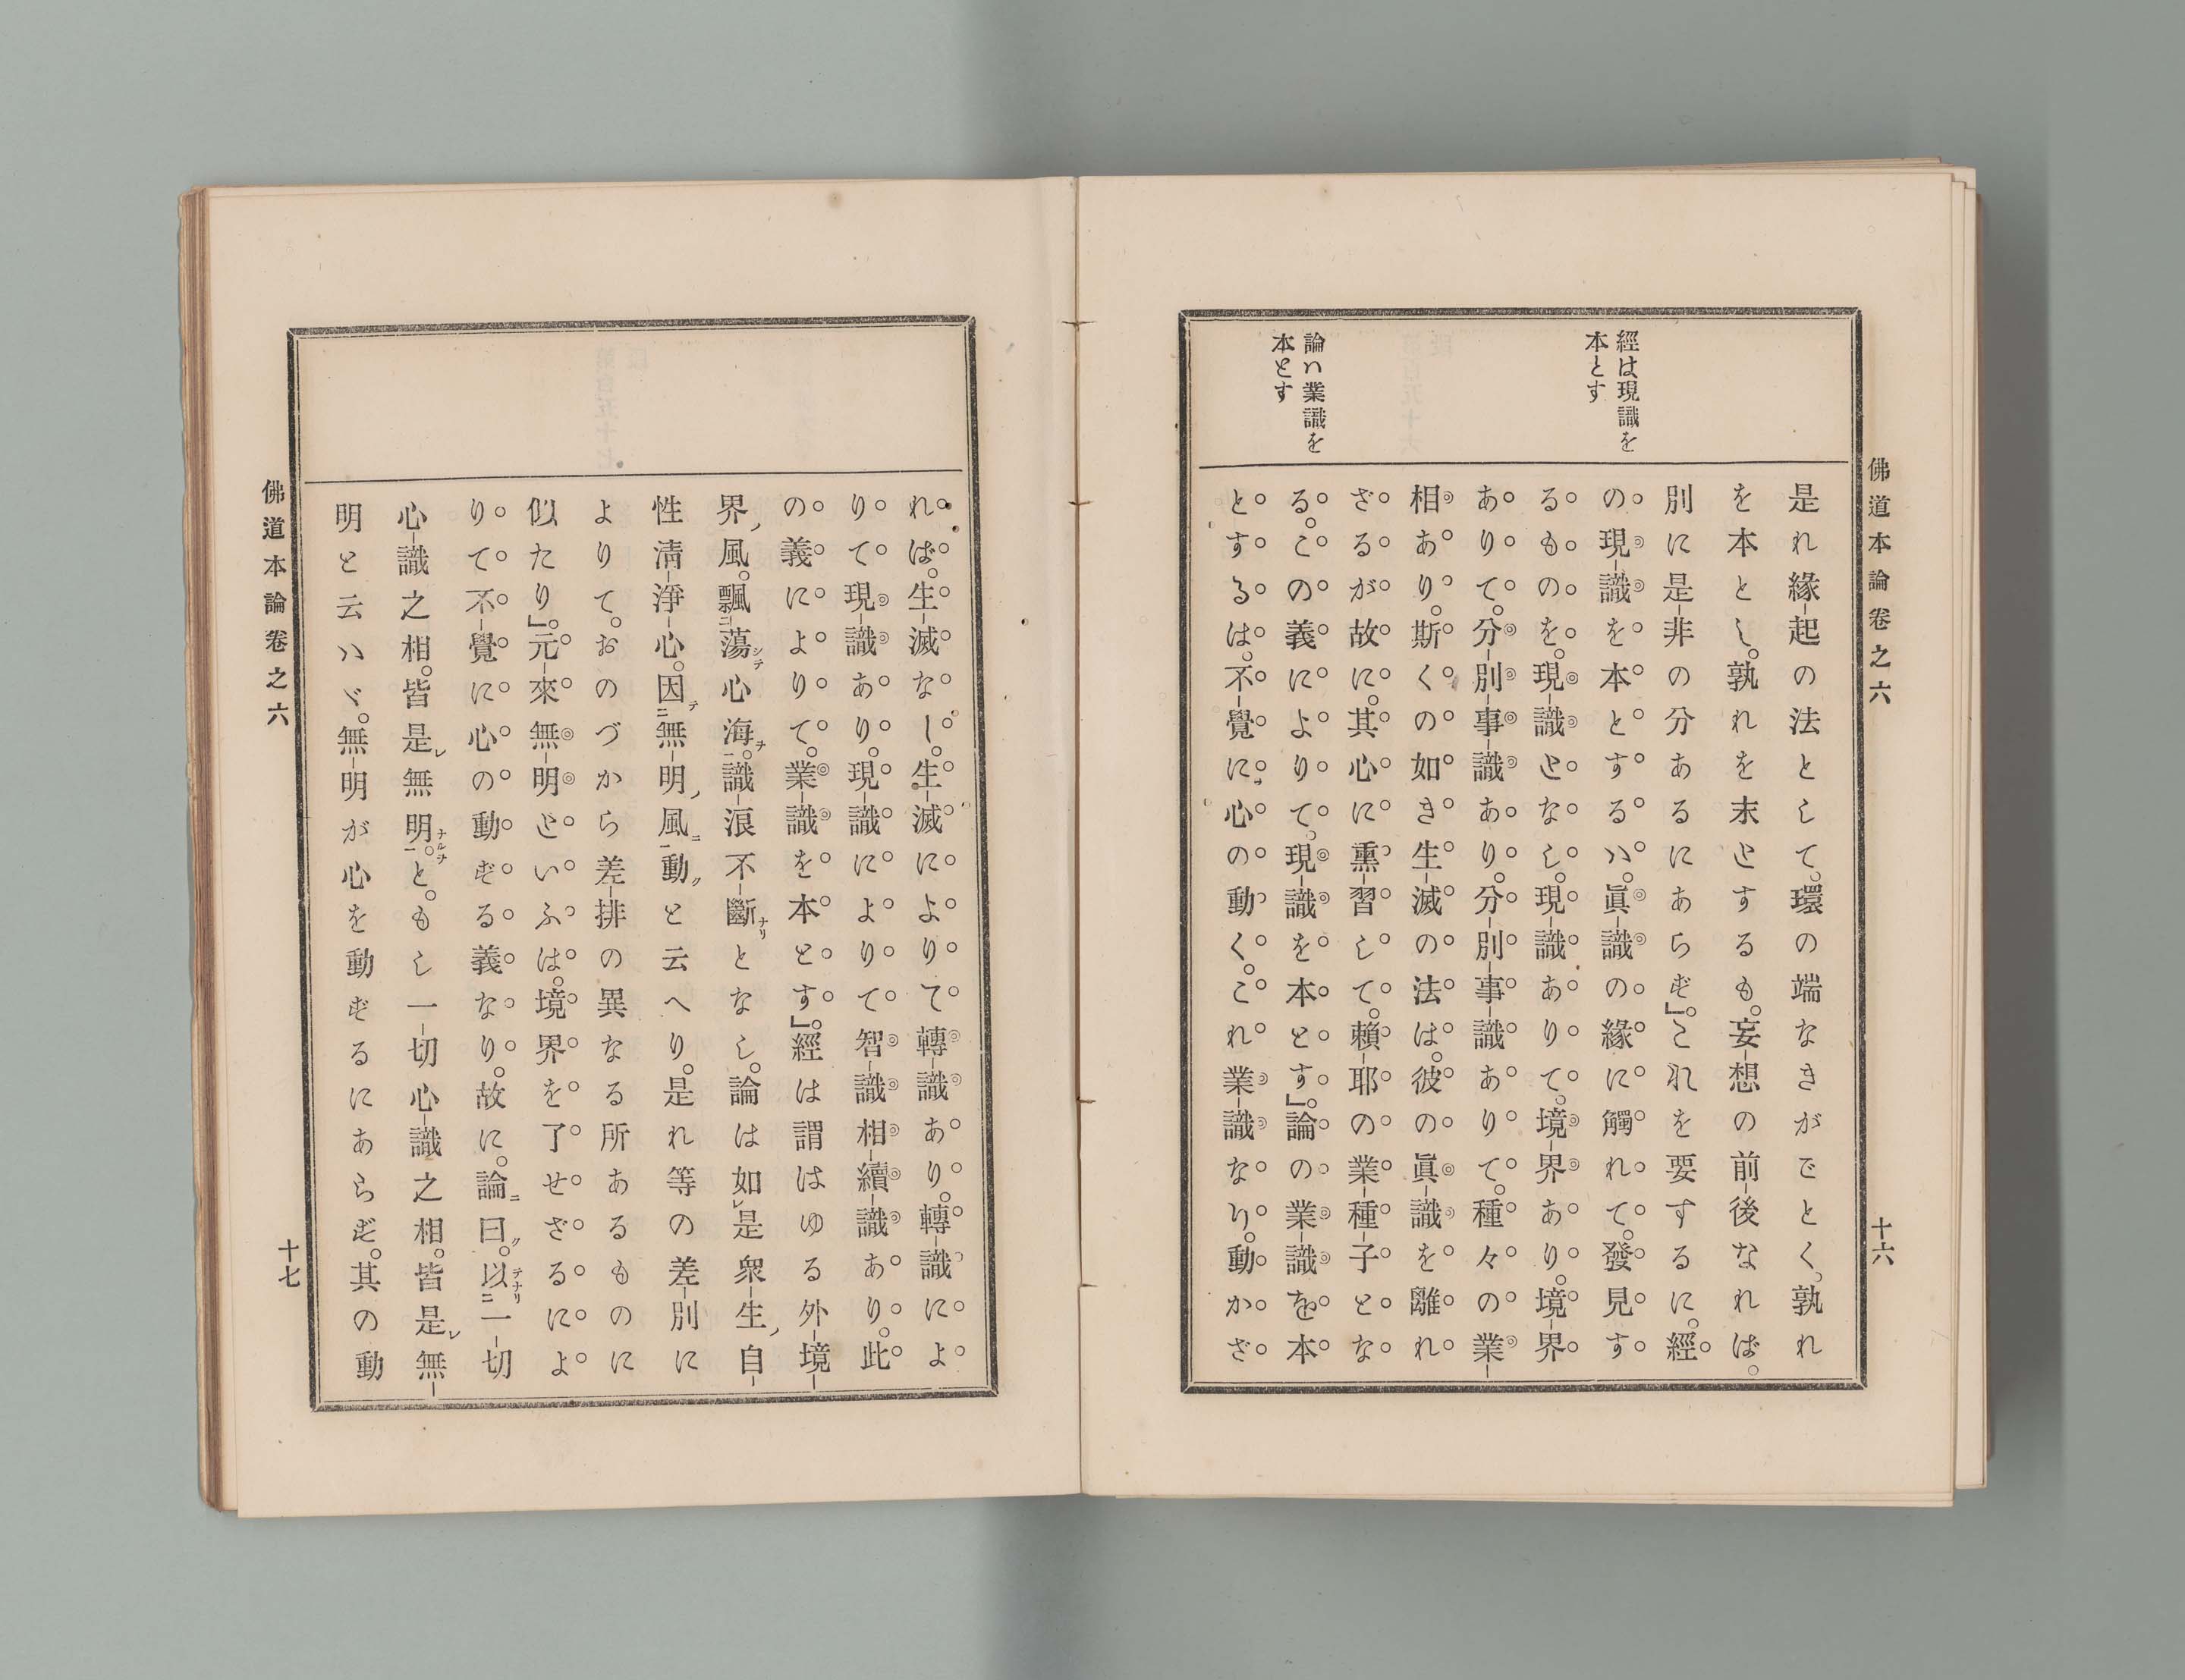 佛道本論卷之六
十六
經は現識を
本とす
論ハ業識を
本とす
是れ緣-起の法として。環の端なきがごとく。孰れ
を本とし。孰れを末とするも。妄-想の前-後なれば。
別に是-非の分あるにあらず」。これを要するに。經
の現-識を本とするハ。眞-識の緣に觸れて。發見す
るものを。現-識となし。現-識ありて。境-界あり。境-界
ありて。分-別-事-識あり。分-別-事-識ありて。種々の業-
相あり。斯くの如き生-滅の法は。彼の眞-識を離れ
ざるが故に。其心に熏-習して。賴-耶の業-種-子とな
る。この義によりて。現-識を本とす」。論の業-識を本
とするは。不-覺に心の動く。これ業-識なり。動かざ
れば。生-滅なし。生-滅によりて轉-識あり。轉-識によ
りて現-識あり。現-識によりて智-識相-續-識あり。此
の義によりて。業-識を本とす」。經は謂はゆる外-境-
界ノ風。飄ニ-蕩シテ心海ヲ一。識-浪不-斷ナリとなし。論は如レ是衆-生ノ自-
性淸-淨-心。因テ二無-明ノ風ニ一動クと云へり。是れ等の差-別に
よりて。おのづから差-排の異なる所あるものに
似たり」。元-來無-明といふは。境界を了せざるによ
りて不-覺に心の動ずる義なり。故に。論ニ曰ク。以テナリ二一-切
心-識之相。皆是レ無明ナルヲ一。と。もし一-切心-識之相。皆是レ無-
明と云ハヾ。無-明が心を動ずるにあらず。其の動
佛道本論卷之六
十七